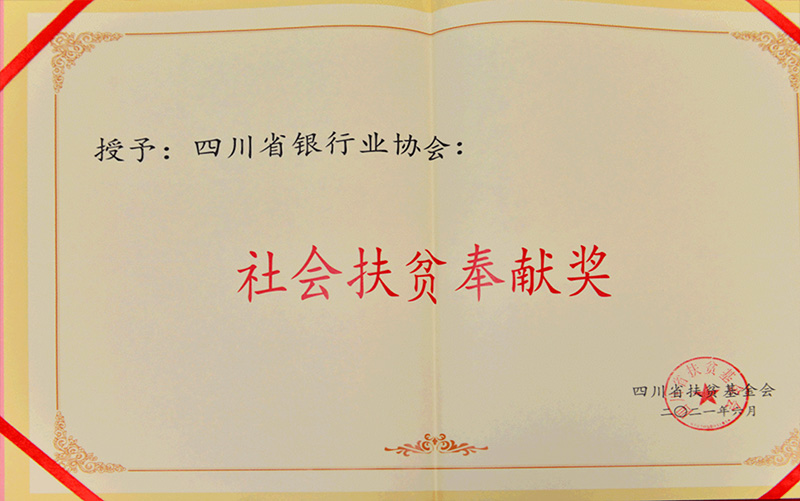 授予：四川省银行业协会：
社会扶贫奉献奖
四川省扶贫基金会
二〇二一年六月